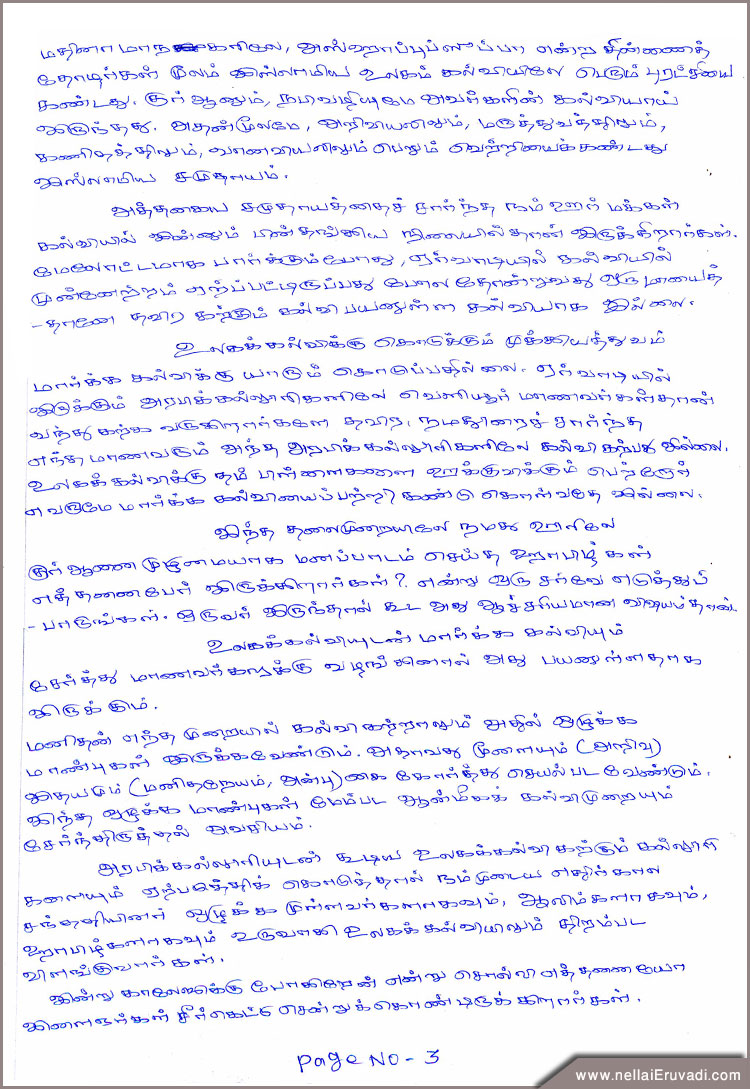 மதினா மாநகரிலே, அஸ்ஹாப்புஸ்ஸுப்பா என்ற திண்ணைத்
தோழர்கள் மூலம் இஸ்லாமிய உலகம் கல்வியிலே பெரும் புரட்சியை
கண்டது. குர்ஆனும், நபிவழியுமே அவர்களின் கல்வியாய்
இருந்தது. அதன்மூலமே, அறிவியலிலும், மருத்துவத்திலும்,
கணிதத்திலும், வானவியலிலும் பெரும் வெற்றியைக் கண்டது
இஸ்லாமிய சமுதாயம்.
அத்தகைய சமுதாயத்தைச் சார்ந்த நம் ஊர் மக்கள்
கல்வியில் இன்னும் பின்தங்கிய நிலையில்தான் இருக்கிறார்கள்.
மேலோட்டமாக பார்க்கும்போது, ஏர்வாடியில் கல்வியில்
முன்னேற்றம் ஏற்பட்டிருப்பது போல தோன்றுவது ஒரு மாயைத்
-தானே தவிர கற்கும் கல்வி பயனுள்ள கல்வியாக இல்லை.
உலகக்கல்விக்கு கொடுக்கும் முக்கியத்துவம்
மார்க்க கல்விக்கு யாரும் கொடுப்பதில்லை. ஏர்வாடியில்
இருக்கும் அரபிக்கல்லூரிகளிலே வெளியூர் மாணவர்கள்தான்
வந்து கற்க வருகிறார்களே தவிர, நமதூரைச் சார்ந்த
எந்த மாணவரும் அந்த அரபிக் கல்லூரிகளிலே கல்வி கற்பது இல்லை.
உலகக் கல்விக்கு தம் பிள்ளைகளை ஊக்குவிக்கும் பெற்றோர்
எவருமே மார்க்க கல்வியைப்பற்றி கண்டு கொள்வதே இல்லை.
இந்த தலைமுறையிலே நமது ஊரிலே
குர்ஆனை முழுமையாக மனப்பாடம் செய்த ஹாபிழ்கள்
எத்தனைபேர் இருக்கிறார்கள்? என்று ஒரு சர்வே எடுத்துப்
-பாருங்கள். ஒருவர் இருந்தால் கூட அது ஆச்சரியமான விஷயம்தான்.
உலகக்கல்வியுடன் மார்க்க கல்வியும்
சேர்த்து மாணவர்களுக்கு வழங்கினால் அது பயனுள்ளதாக
இருக்கும்.
மனிதன் எந்த முறையில் கல்வி கற்றாலும் அதில் ஒழுக்க
மாண்புகள் இருக்கவேண்டும். அதாவது மூளையும் (அறிவு)
இதயமும் (மனிதநேயம், அன்பு) கை கோர்த்து செயல்பட வேண்டும்.
இந்த ஒழுக்க மாண்புகள் மேம்பட ஆன்மீகக் கல்வி முறையும்
சேர்ந்திருத்தல் அவசியம்.
அரபிக்கல்லூரியுடன் கூடிய உலகக்கல்வி கற்கும் கல்லூரி
களையும் ஏற்படுத்திக் கொடுத்தால் நம்முடைய எதிர்கால
சந்ததியினர் ஒழுக்க முள்ளவர்களாகவும், ஆலிம்களாகவும்,
ஹாபிழ்களாகவும் உருவாகி உலகக் கல்வியிலும் திறம்பட
விளங்குவார்கள்.
இன்று காலேஜுக்கு போகிறேன் என்று சொல்லி எத்தனையோ
இளைஞர்கள் சீர்கெட்டு சென்றுக்கொண்டிருக்கிறார்கள்.
Page No - 3
www.nellaiEruvadi.com